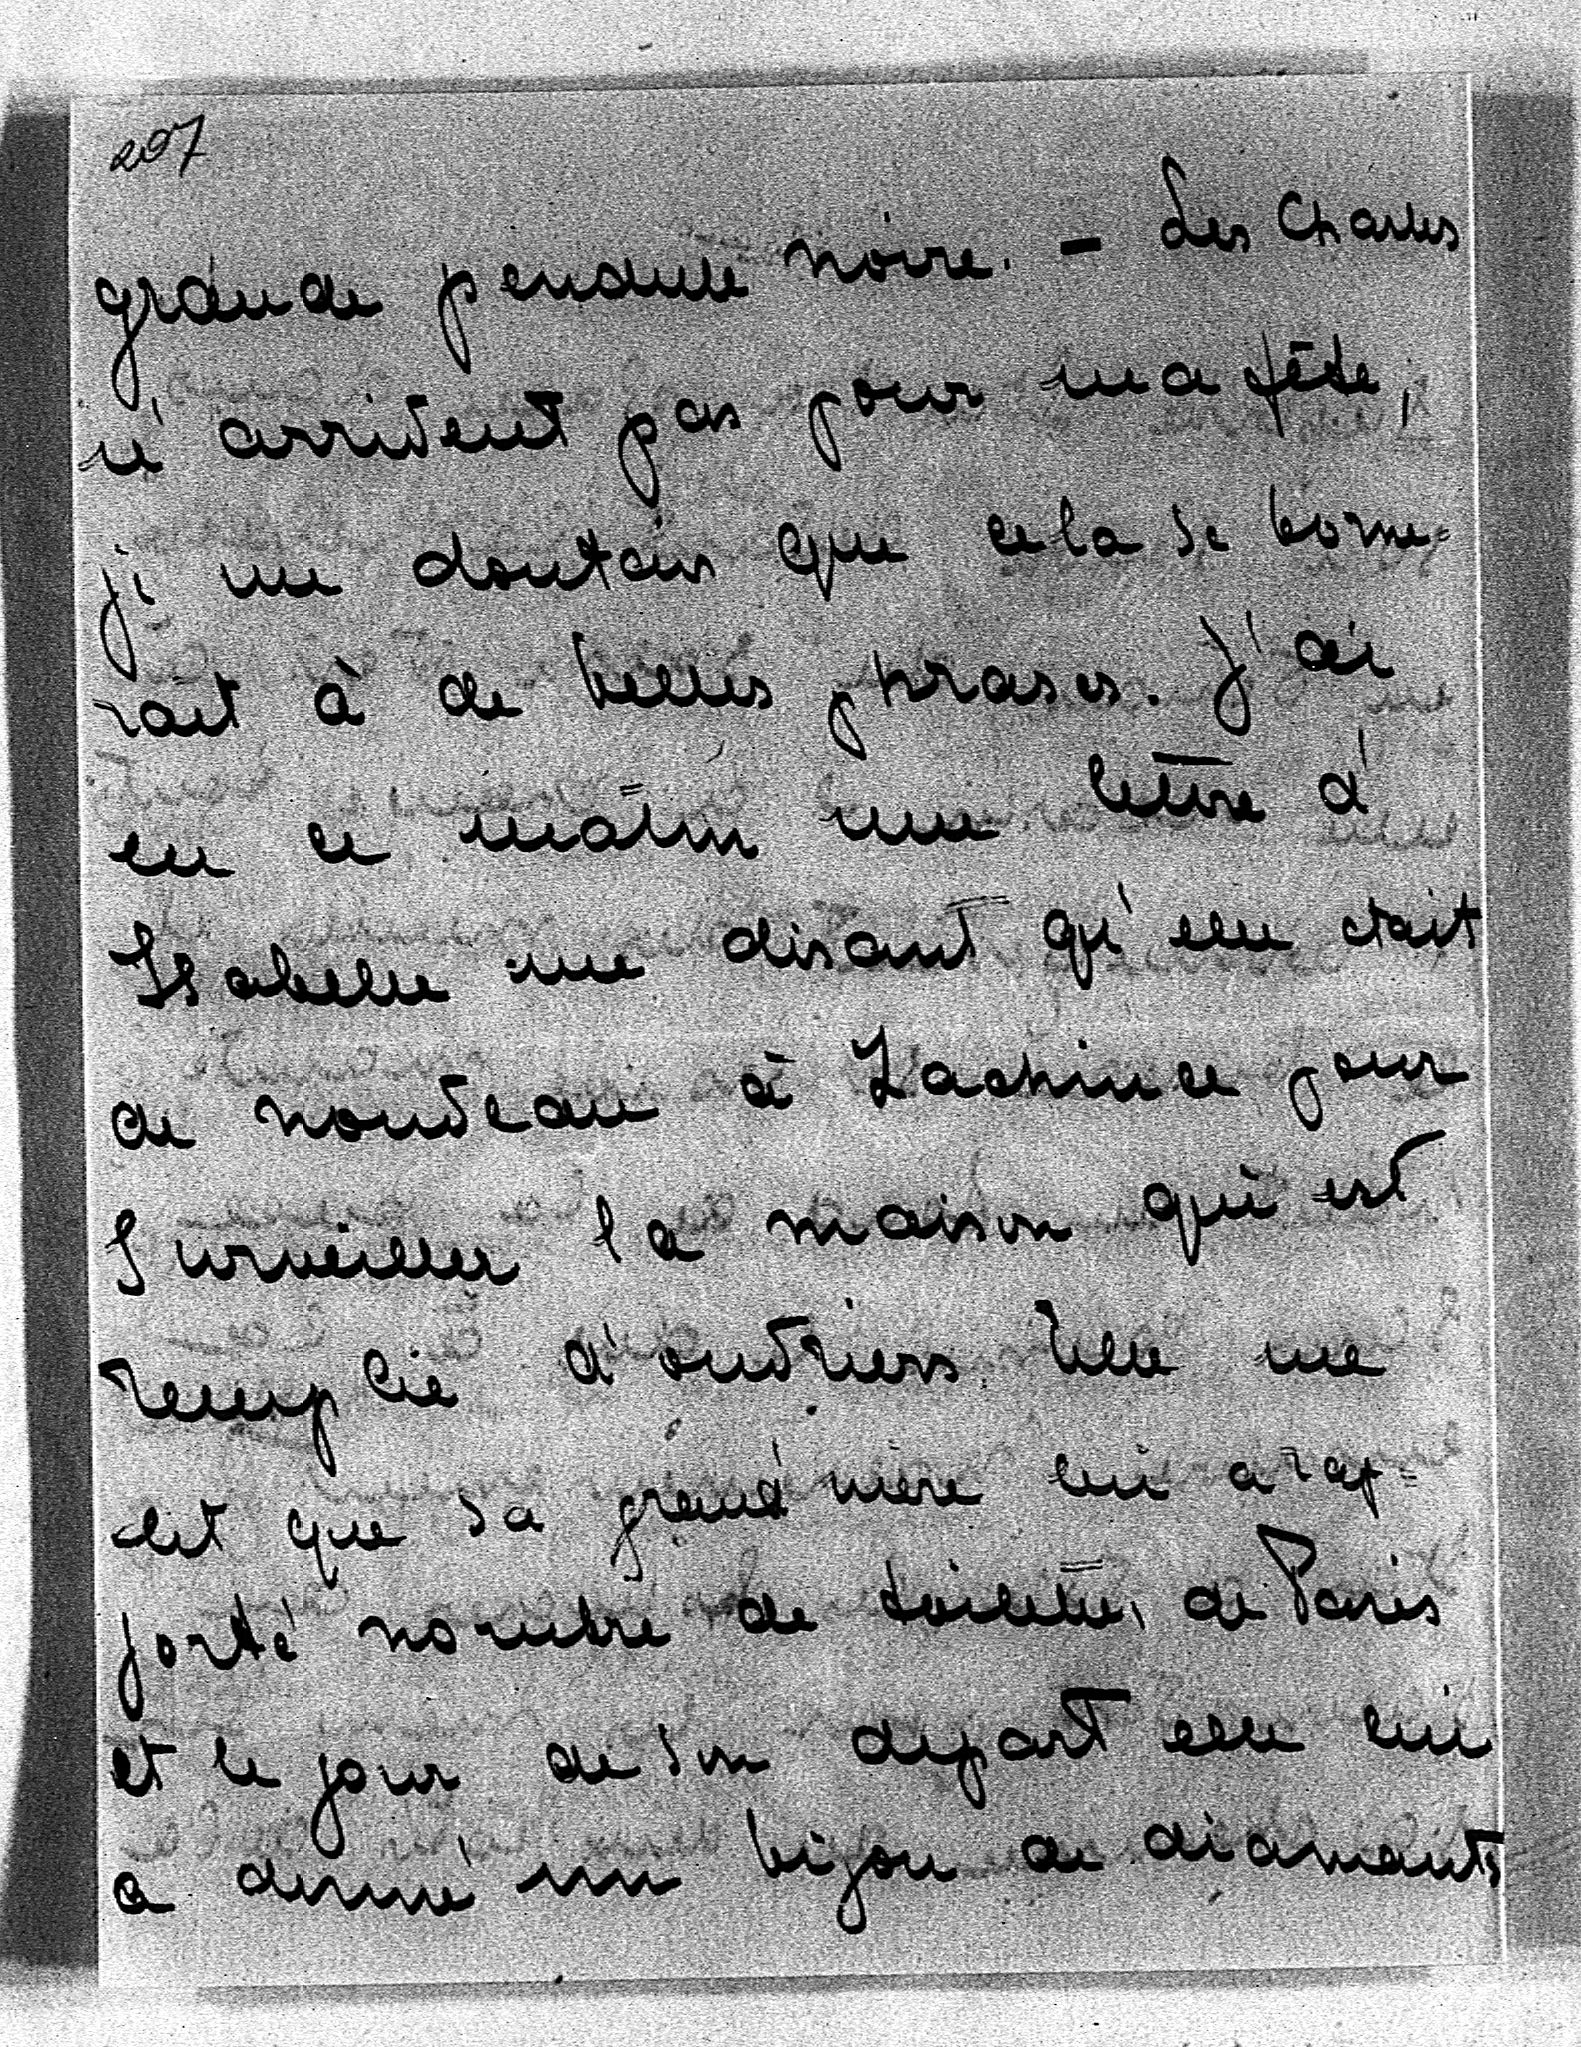 207
grande pendule noire. - Les Charles
n'arrivent pas pour ma fête,
je me doutais que cela se borne=
rait à de belles phrases. J'ai
eu ce matin une lettre d'
Isabelle me disant qu'elle était
de nouveau à Lachine pour
Surveiller la maison qui est
remplie d'ouvriers. Elle me
dit que sa grand'mère lui a rap=
porté nombre de toilettes de Paris
et le jour de son départ elle lui
a donné un bijou de diamants